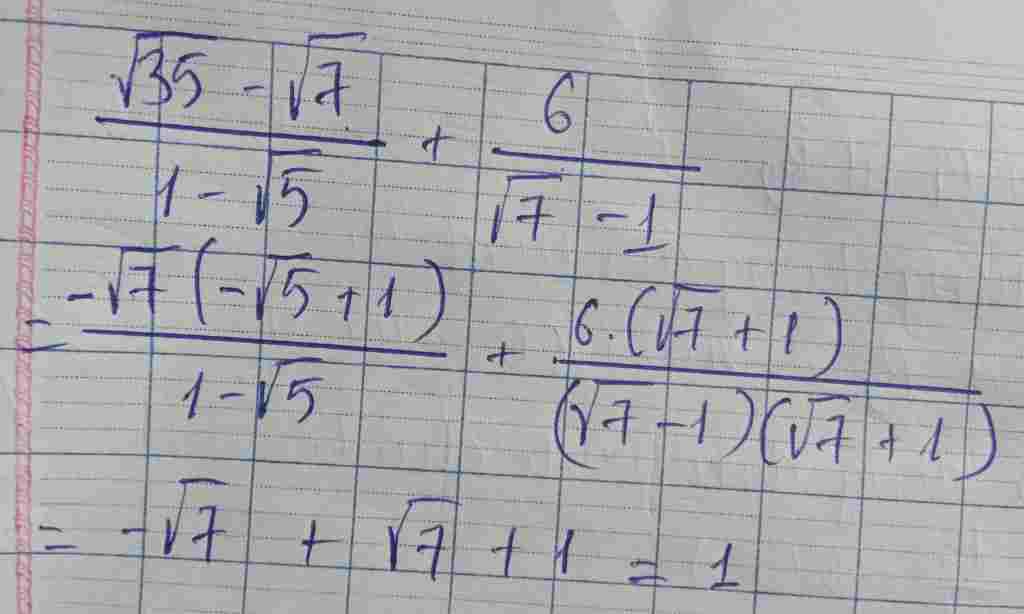 (√35 - √7)/(1 - √5) + 6/(√7 - 1)
= -√7(-√5 + 1)/(1 - √5) + 6.(√7 + 1)/((√7 - 1)(√7 + 1))
= -√7 + √7 + 1 = 1